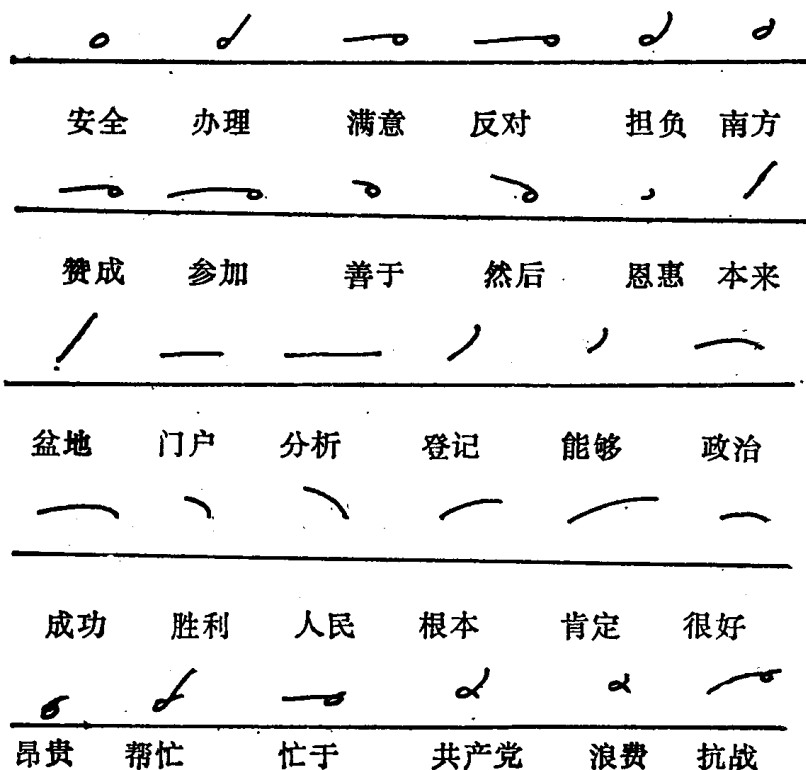 安全 办理 满意 反对 担负 南方
赞成 参加 善于 然后 恩惠 本来
盆地 门户 分析 登记 能够 政治
成功 胜利 人民 根本 肯定 很好
昂贵 帮忙 忙于 共产党 浪费 抗战